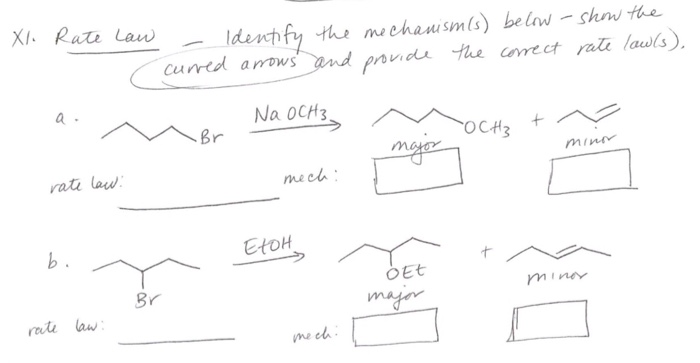 XI. Rate Law - Identify the mechanism(s) below - show the
curved arrows and provide the correct rate law(s).
a.
Br
NaOCH3
OCH3
+
major
minor
rate law:
mech:
b.
Br
EtOH
OEt
+
major
minor
rate law:
mech: